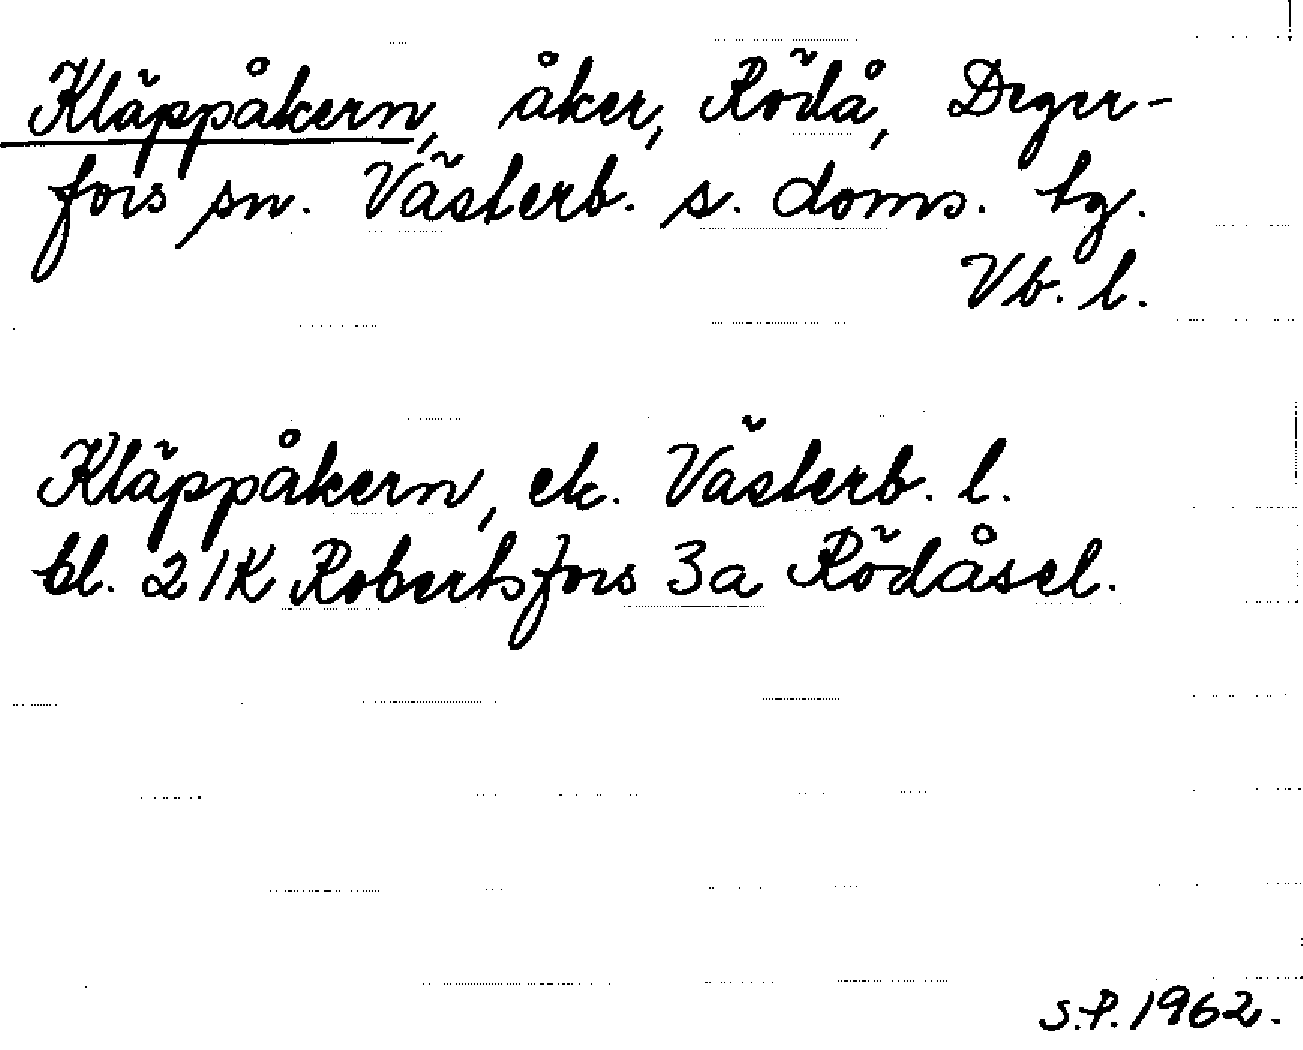 Kläppåkern, åker, Rödå, Deger-
fors sn. Västerb. s. doms. tg.
Vb. l.
Kläppåkern, ek. Västerb. l.
bl. 21K Robertsfors 3a Rödåsel.
S.P. 1962.